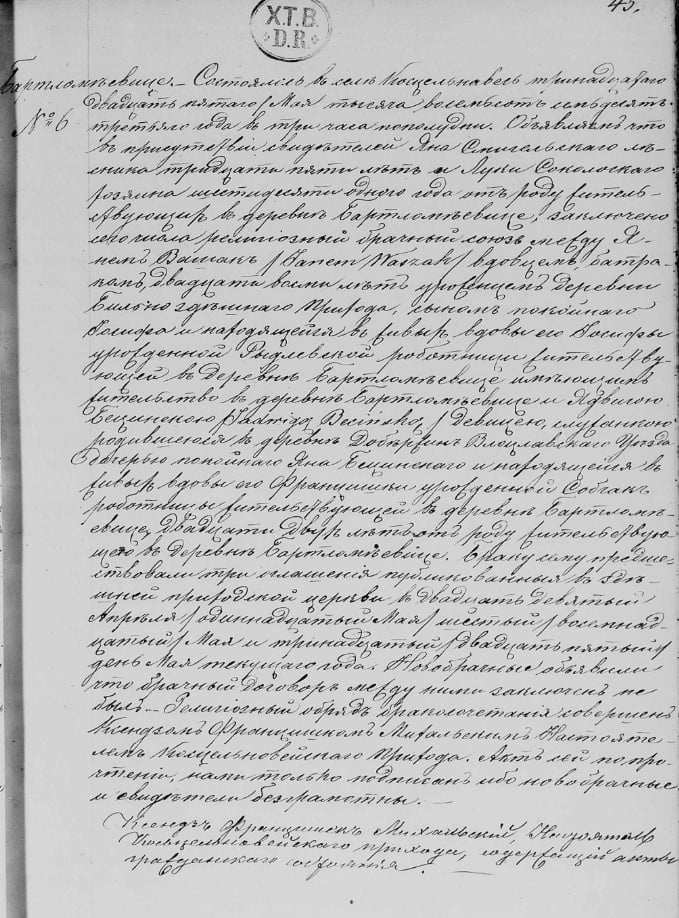 45.
X.T.B.
D.R.
Бартломѣевице. Состоялось въ селѣ Косцельнавесь тринадцатаго
№ 6
/двадцать пятаго/ Мая тысяча восемьсотъ семьдесятъ
третьяго года въ три часа пополудни. Объявляемъ что
въ присутствіи свидѣтелей Яна Спигельскаго лѣ-
сника тридцати пяти лѣтъ и Луки Соколоскаго
хозяина шестидесяти одного года отъ роду житель-
ствующихъ въ деревнѣ Бартломѣевице, заключено
сего числа религіозный брачный союзъ между Я-
номъ Вашакъ /Janem Waszak/ вдовцемъ, батра-
комъ, двадцати восьми лѣтъ урожденцемъ деревни
здѣшняго прихода, сыномъ покойнаго
Іосифа и находящейся въ живыхъ вдовы его Іосифы
урожденной Рыдлевской работницы жительству-
ющей въ деревнѣ Бартломѣевице имѣющимъ
жительство въ деревнѣ Бартломѣевице и Ядвигою
Бецинскою /Jadwigą Becińską/ девицею, служанкою
родившеюся въ деревнѣ Влоцлавскаго Уѣзда
дочерью покойнаго Яна Бецинскаго и находящейся въ
живыхъ вдовы его Францишки урожденной Собчакъ
работницы жительствующей въ деревнѣ Бартломѣ-
евице, двадцати двухъ лѣтъ отъ роду жительствую-
щею въ деревнѣ Бартломѣевице. Браку сему предше-
ствовали три оглашенія публикованныя въ здѣ-
шней приходской церкви въ двадцать девятый
Апрѣля /одиннадцатый Мая/ шестый /восемнад-
цатый/ Мая и тринадцатый /двадцать пятый/
день Мая текущаго года. Новобрачные объявили
что брачный договоръ между ними заключенъ не
былъ. Религіозный обрядъ бракосочетанія совершенъ
Ксендзомъ Францишкомъ Михальскимъ Настояте-
лемъ Косцельновейскаго прихода. Актъ сей по про-
чтеніи, нами только подписанъ ибо новобрачные
и свидѣтели безграмотны.
Ксендзъ Францишекъ Михальскій, Настоятель
Косцельновейскаго прихода, содержащій акты
гражданскаго состоянія.